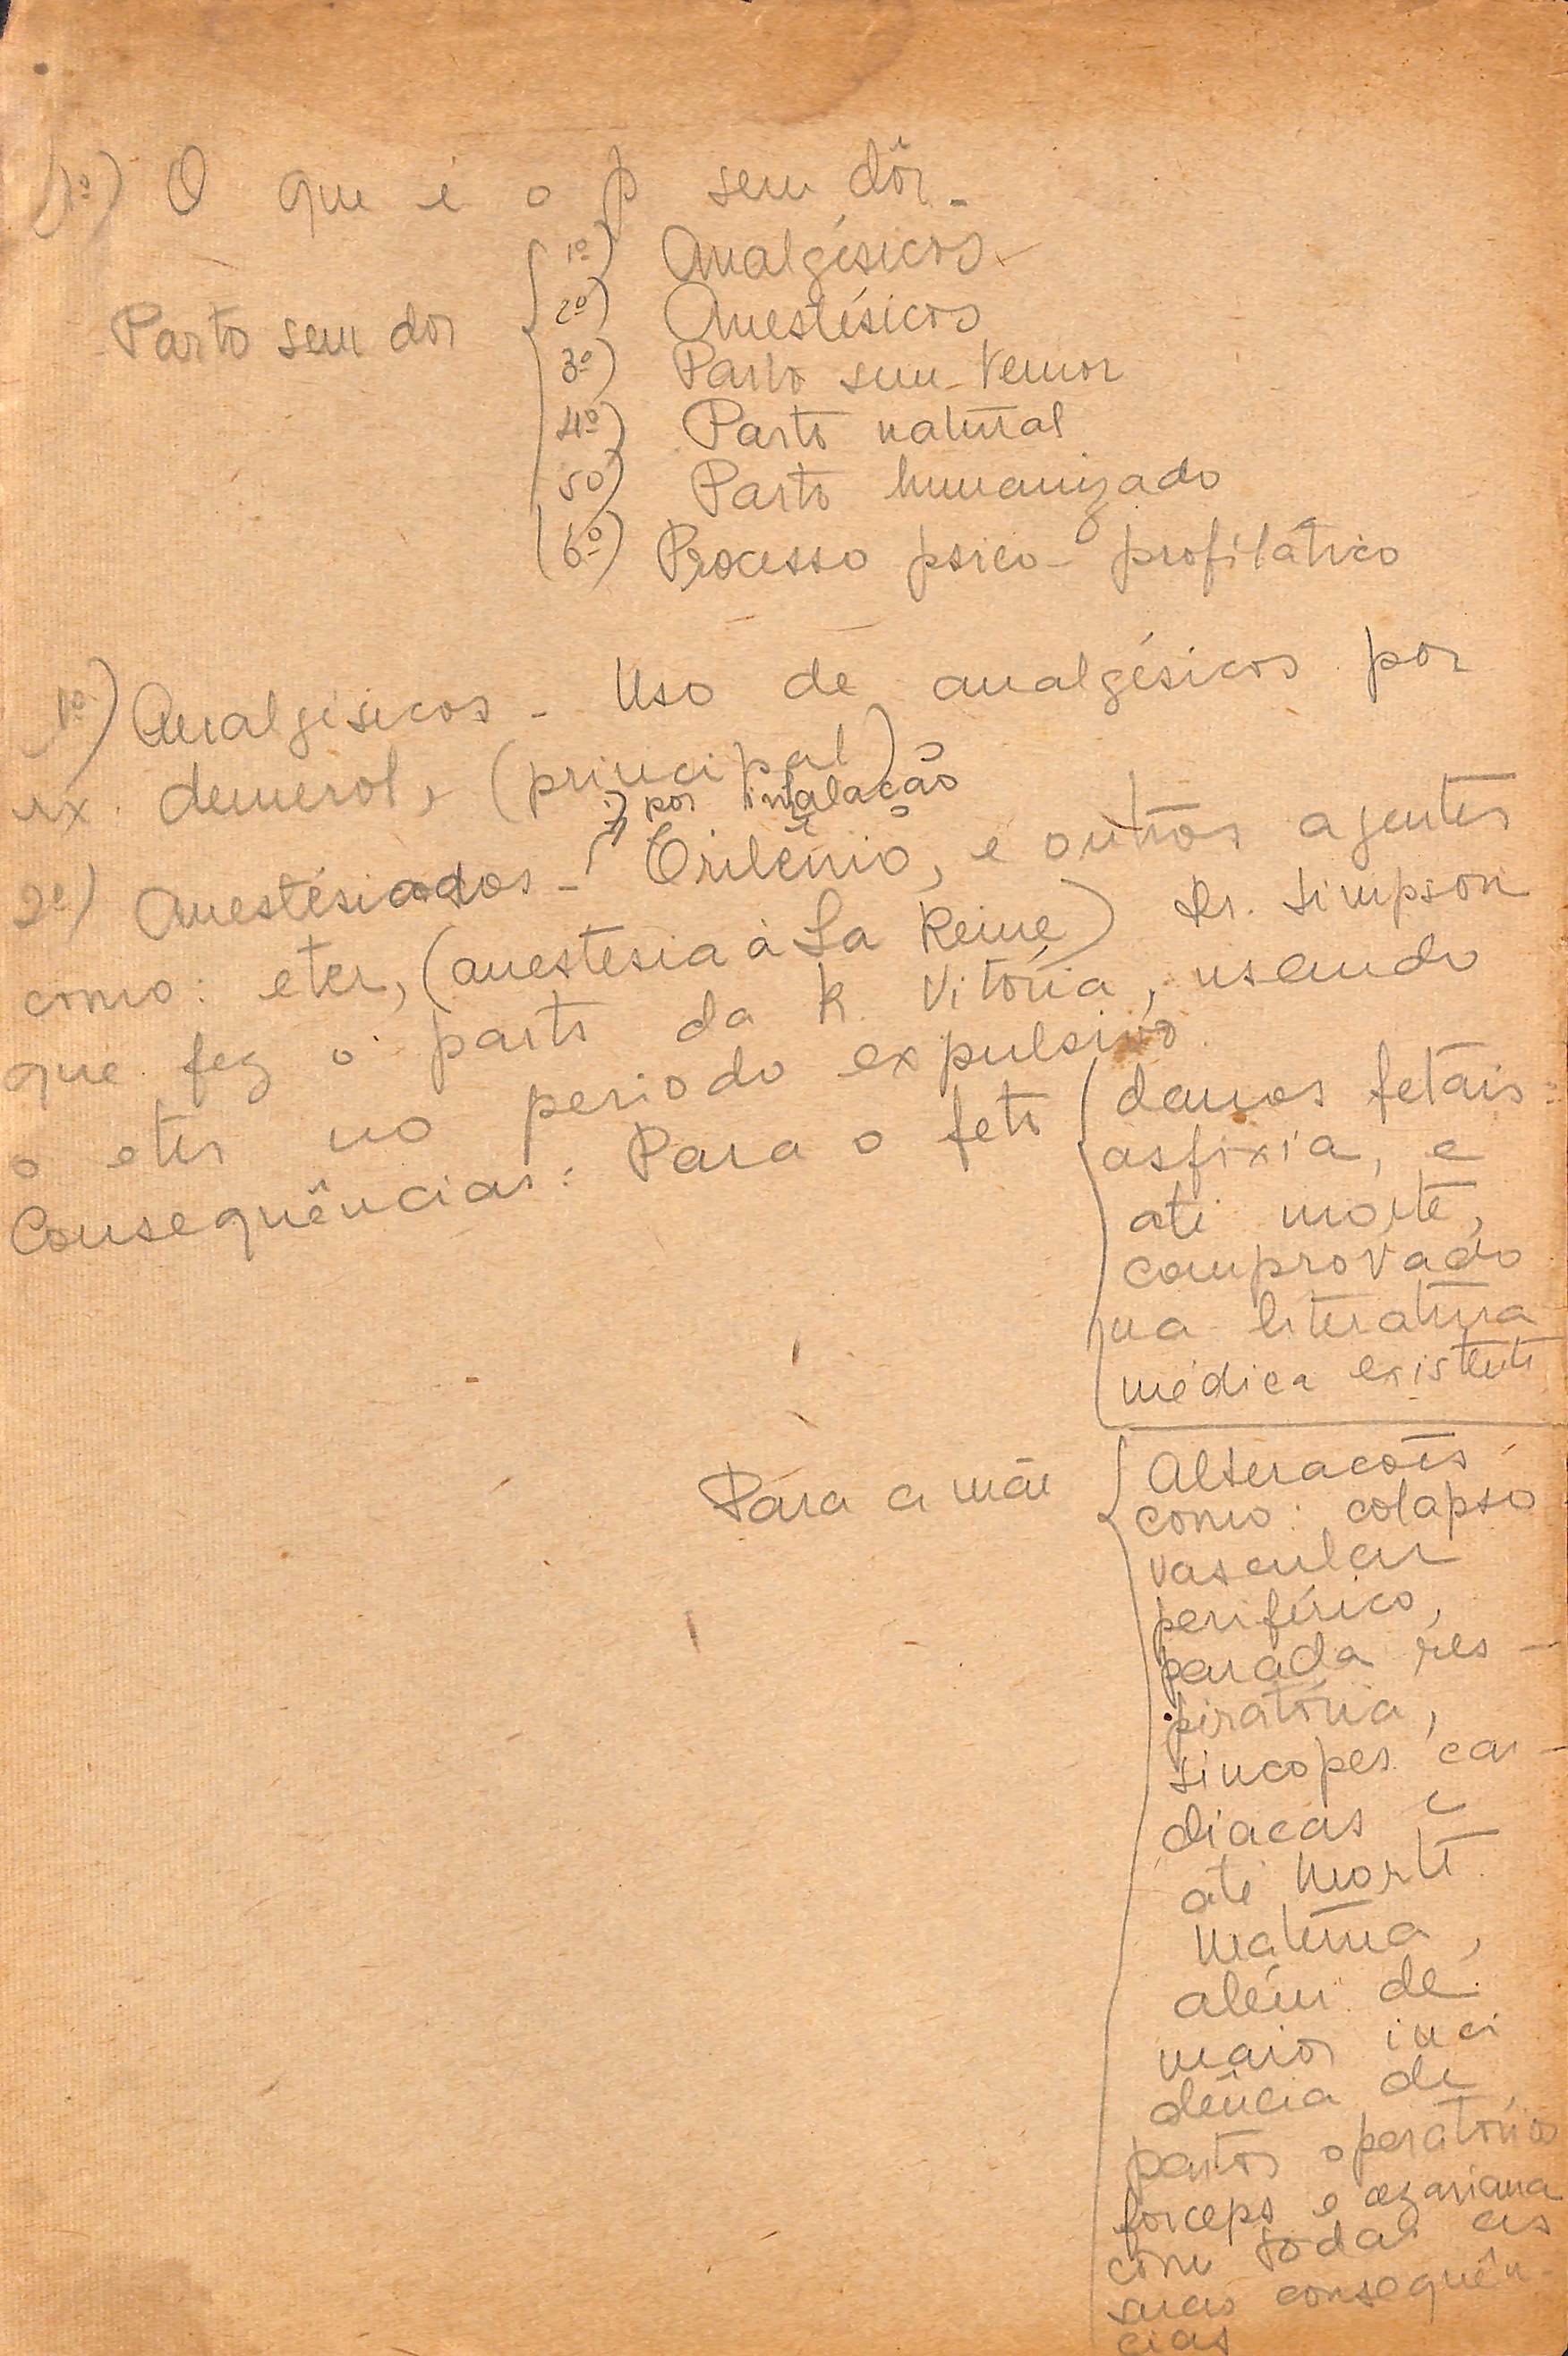 1º) O que é o p sem dôr.
Parto sem dor
1º) Analgésicos
2º) Anestésicos
3º) Parto sem temor
4º) Parto natural
5º) Parto humanizado
6º) Processo psico-profilático
1º) Analgésicos - Uso de analgésicos por
ex. demerol, (principal)
por inalação
2º) Anestésicos - Trilênio, e outros agentes
como: eter, (anestesia à La Reine) Dr. Simpson
que fez o parto da R. Vitória, usando
o eter no periodo expulsivo.
Consequências: Para o feto
danos fetais:
asfixia, e
até morte,
comprovado
na literatura
médica existente
Para a mãe
Alteracões
como: colapso
vascular
periférico,
parada res-
piratória,
sincopes car-
diacas e
até morte
materna,
além de
maior inci
dência de
partos operatórios
forceps e cezariana
com todas as
suas consequên-
cias